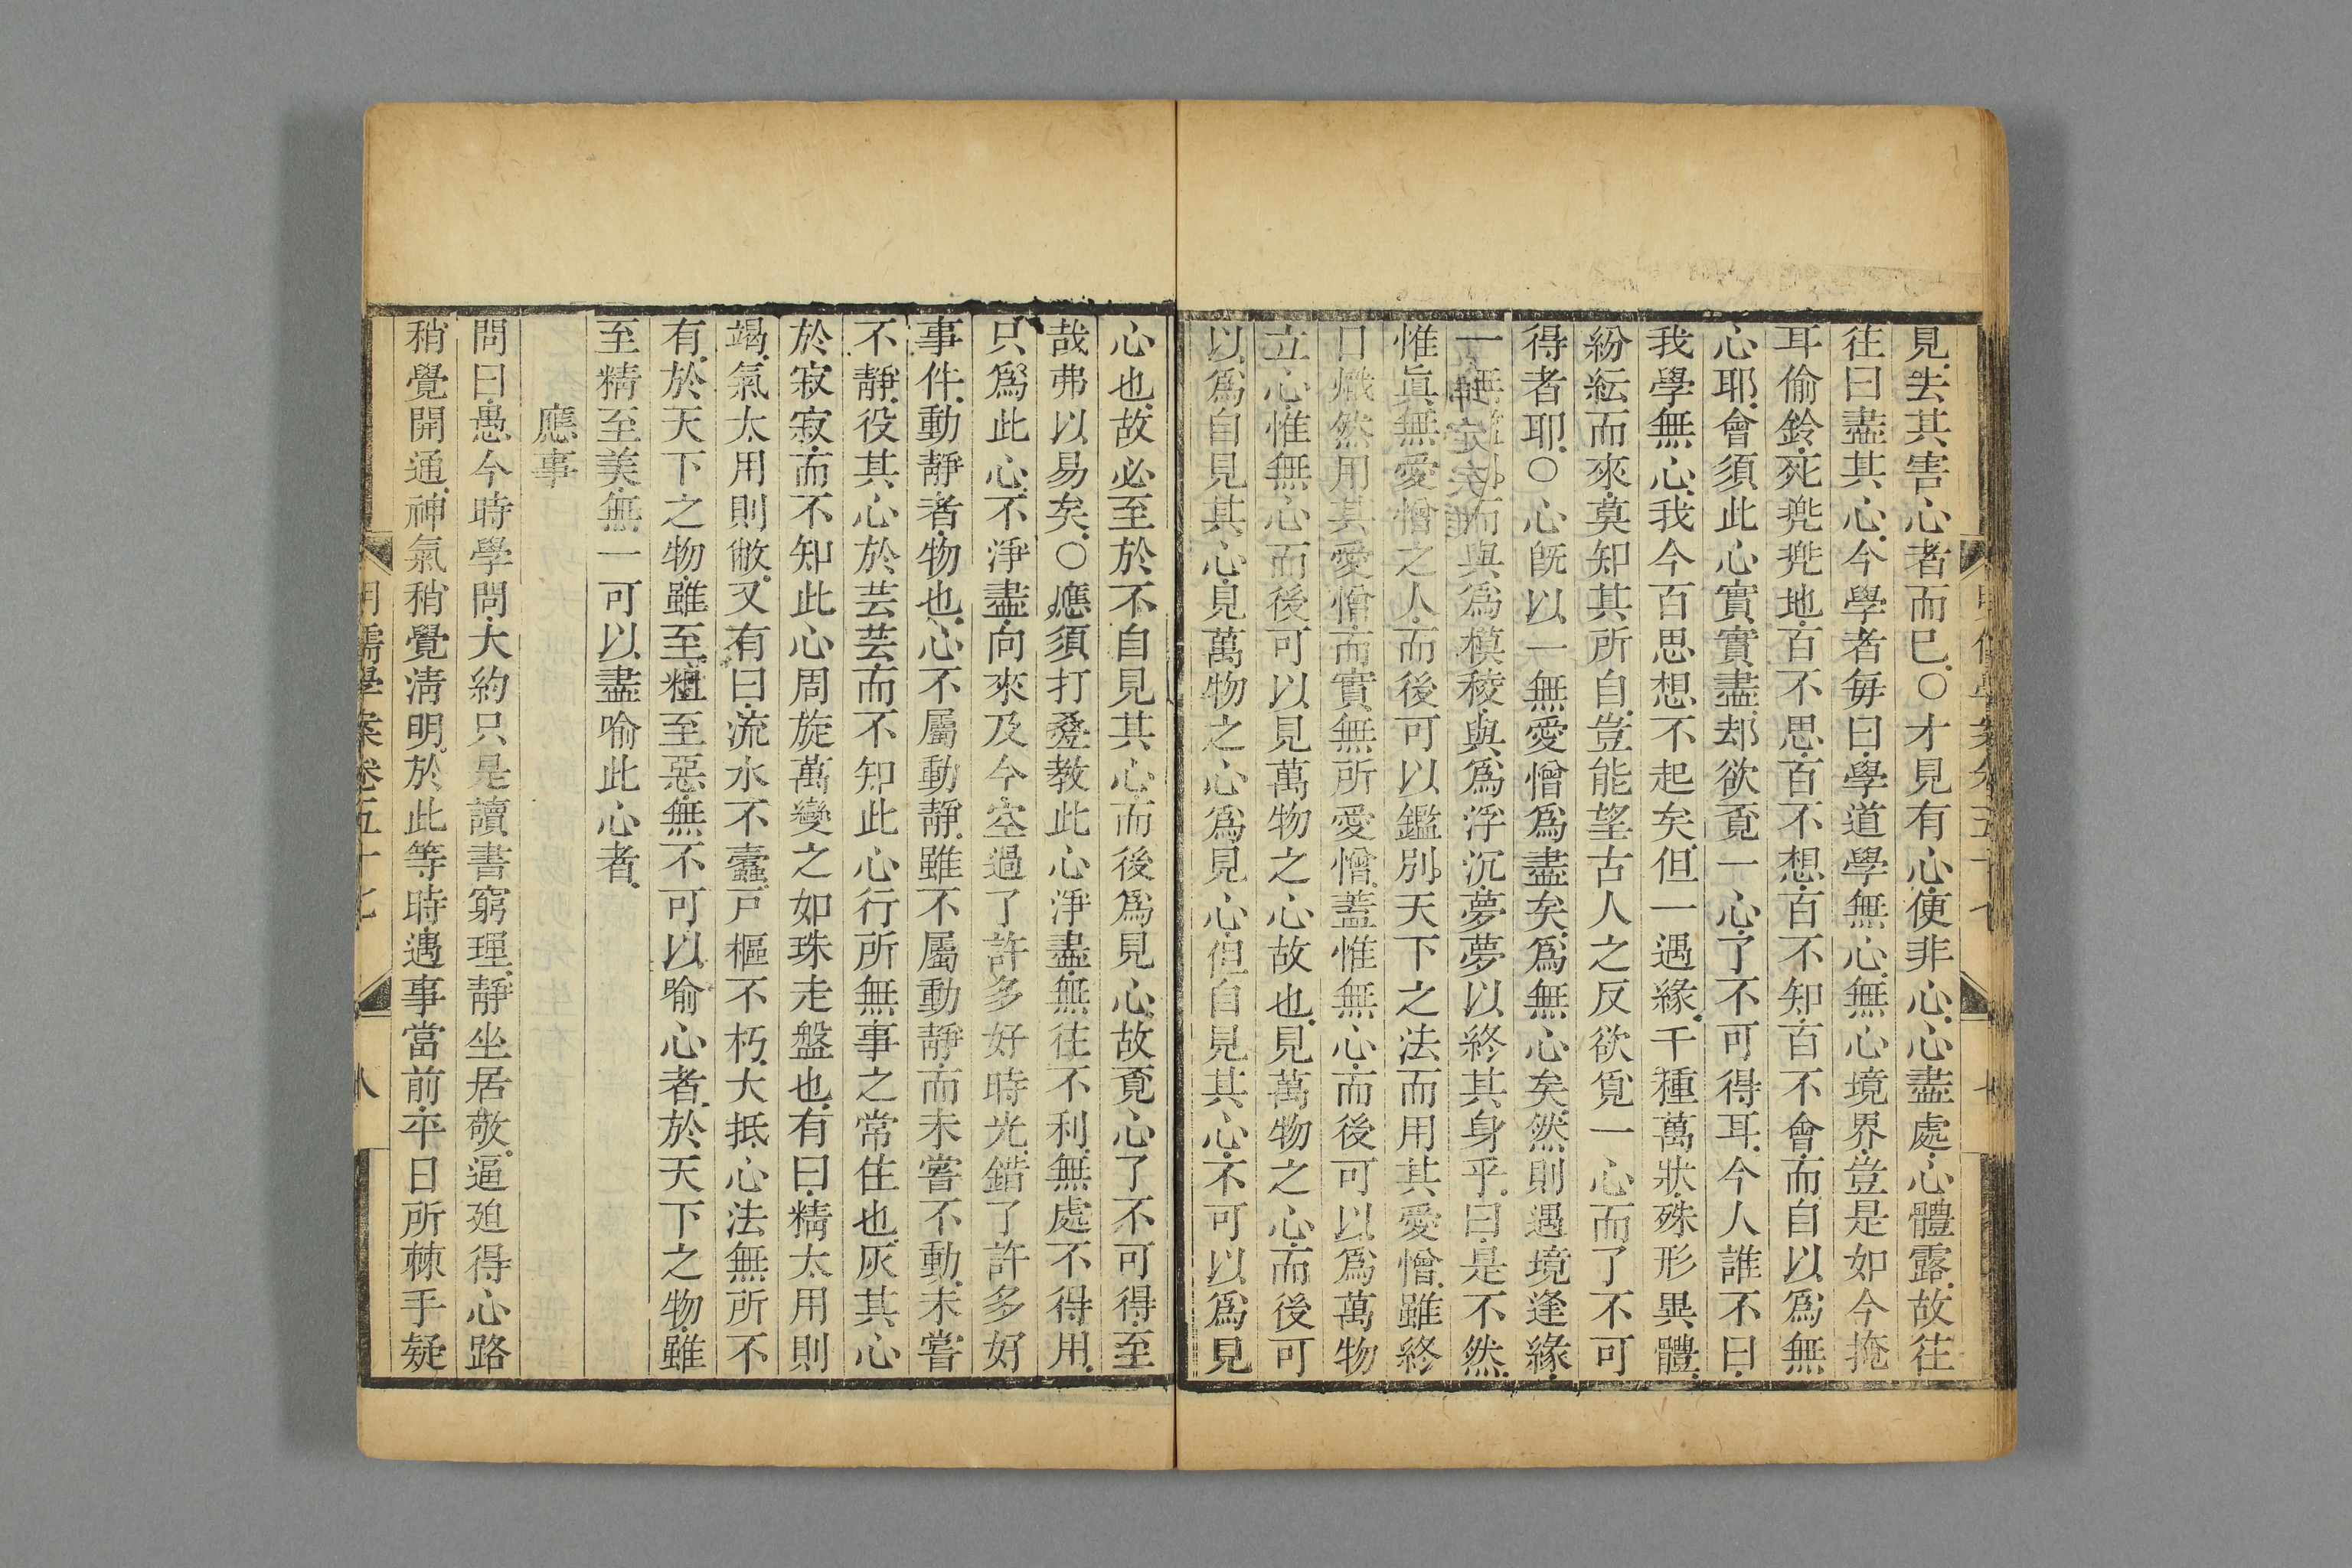 見去其害心者而已○才見有心便非心心盡處心體露故往
往曰盡其心今學者每曰學道學無心無心境界豈是如今掩
耳偷鈴死兠兠地百不思百不想百不知百不會而自以爲無
心耶會須此心實實盡却欲覔一心了不可得耳今人誰不曰
我學無心我今百思想不起矣但一遇緣千種萬狀殊形異體
紛紜而來莫知其所自豈能望古人之反欲覓一心而了不可
得者耶○心旣以一無愛憎爲盡矣爲無心矣然則遇境逢緣
一無鑑別而與爲模稜與爲浮沉夢夢以終其身乎曰是不然
惟眞無愛憎之人而後可以鑑別天下之法而用其愛憎雖終
日熾然用其愛憎而實無所愛憎蓋惟無心而後可以爲萬物
立心惟無心而後可以見萬物之心故也見萬物之心而後可
以爲自見其心見萬物之心爲見心但自見其心不可以爲見
心也故必至於不自見其心而後爲見心故覔心了不可得至
哉弗以易矣○應須打疊教此心淨盡無往不利無處不得用
只爲此心不淨盡向來及今空過了許多好時光錯了許多好
事件動靜者物也心不屬動靜雖不屬動靜而未嘗不動未嘗
不靜役其心於芸芸而不知此心行所無事之常住也灰其心
於寂寂而不知此心周旋萬變之如珠走盤也有曰精太用則
竭氣太用則敝又有曰流水不蠹戸樞不朽大抵心法無所不
有於天下之物雖至粗至惡無不可以喻心者於天下之物雖
至精至美無一可以盡喻此心者
應事
問曰愚今時學問大約只是讀書窮理靜坐居敬逼廹得心路
稍覺開通神氣稍覺淸明於此等時遇事當前平日所棘手疑
明儒學案卷五十七
八